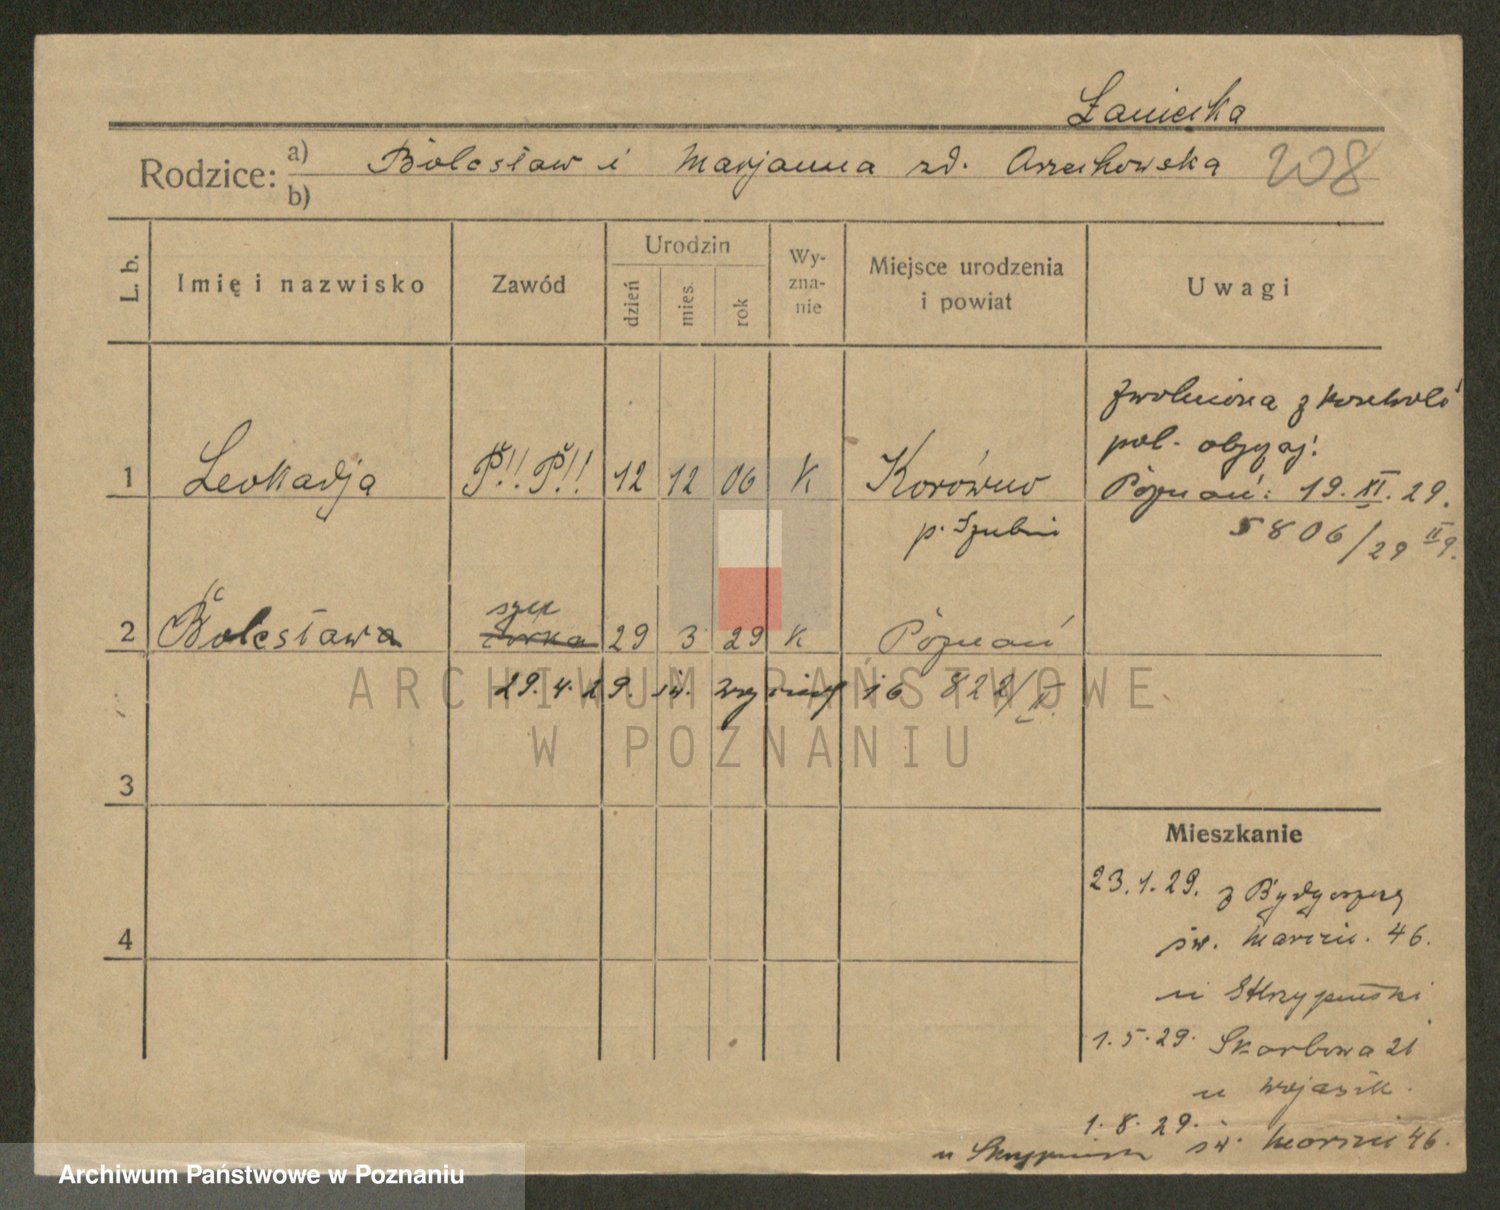 Łaniecka
Rodzice: a) Bolesław i Marjanna zd. Orzechowska 208
b)
L. b. Imię i nazwisko Zawód Urodzin dzień mies. rok Wyznanie Miejsce urodzenia i powiat Uwagi
zwolniona z kontroli
pol. obycz.
1 Leokadja P!! P!! 12 12 06 K Korówno Poznań: 19. XI. 29.
p. Szubin 5806/29
2 Bolesława córka 29 3 29 K Poznań
29. 4. 29. św. 16 822/II
3
4
Mieszkanie
23.1.29. z Bydgoszczy
św. Marcin. 46.
u Skrzypiński
1.5.29. Skarbowa 21
u Wojasik.
1.8.29. św. Marcin 46.
u
ARCHIWUM PAŃSTWOWE
W POZNANIU
Archiwum Państwowe w Poznaniu